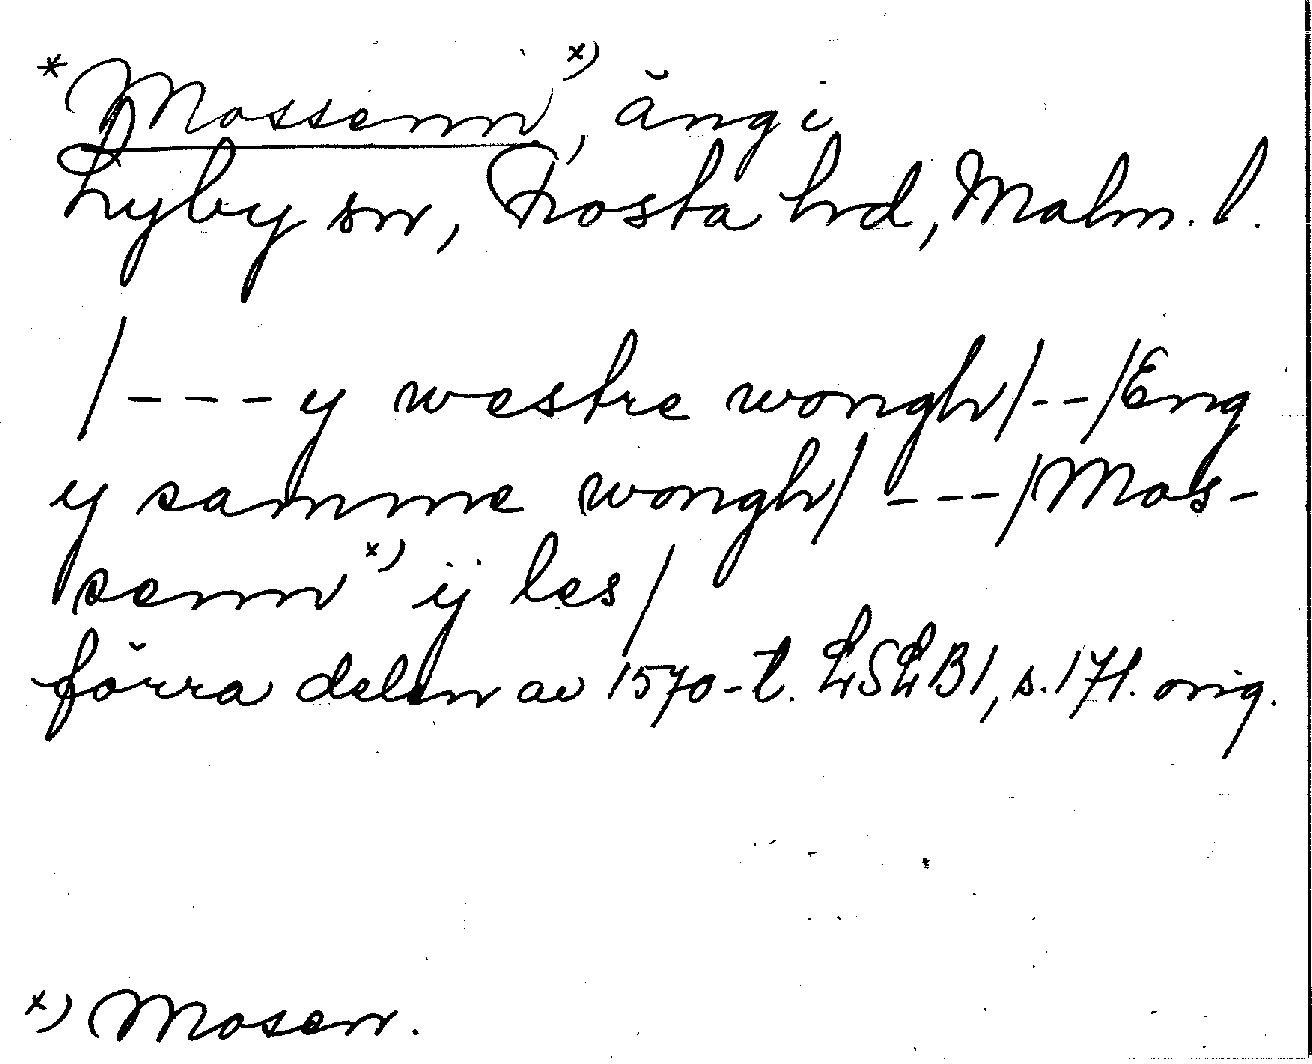 * Mossenn x), äng i
Lyby sn, Frosta hrd, Malm. l.
/ - - - y westre wongh / - - / Eng
y samme wongh / - - - / Mos-
senn x) ij les /
förra delen av 1570-t. LSLB1, s. 171. orig.
x) Mosen.